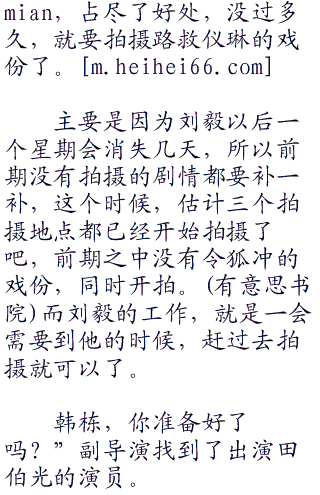 mian，占尽了好处，没过多
久，就要拍摄路救仪琳的戏
份了。[m.heihei66.com]
主要是因为刘毅以后一
个星期会消失几天，所以前
期没有拍摄的剧情都要补一
补，这个时候，估计三个拍
摄地点都已经开始拍摄了
吧，前期之中没有令狐冲的
戏份，同时开拍。(有意思书
院)而刘毅的工作，就是一会
需要到他的时候，赶过去拍
摄就可以了。
韩栋，你准备好了
吗？”副导演找到了出演田
伯光的演员。